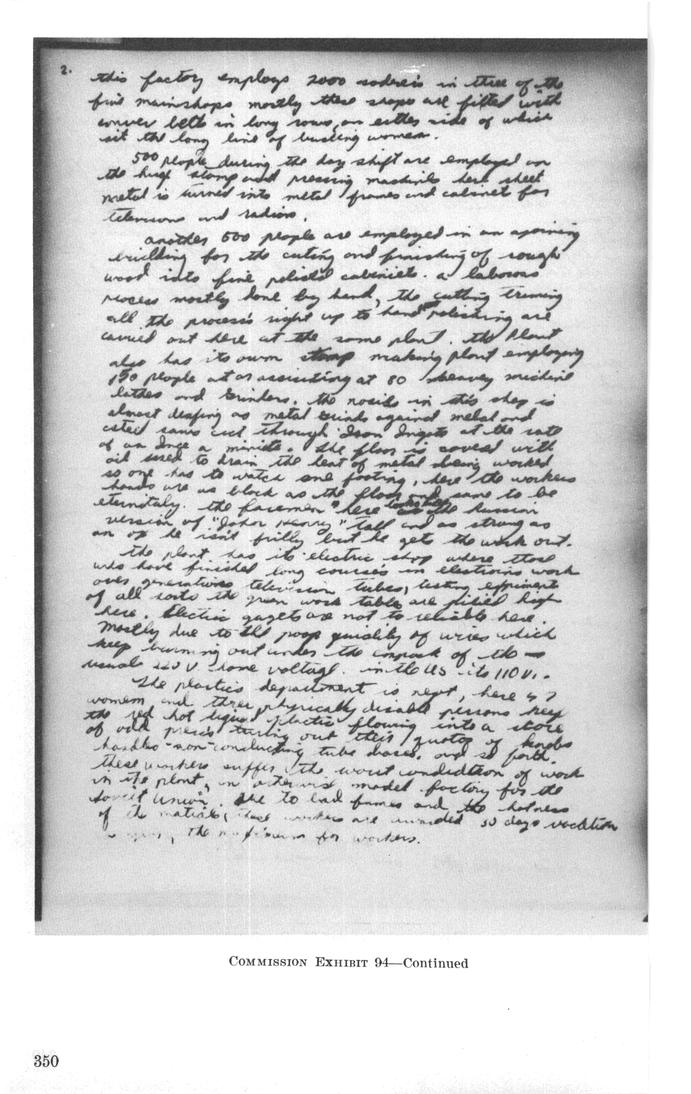 2.
this factory employs 2000 sodereis in three of the
five mainshops mostly these shops are fitted with
conver belts in long rows, on either side of which
sit the long line of bustling women.
500 people during the day shift are employed on
the huge stamp and pressing machines here sheet
metal is turned into metal frames and cabinet for
televisons and radios.
another 500 people are employed in an ajoining
building for the cuting and finishing of rough
wood into fine polistid cabiniets. a laborous
process mostly done by hand, the cutting triming
all the process right up to hand polishing are
carried out here at the same plant. the Plant
also has its own stamp making plant employing
150 people at or assisiting at 80 heavey michine
lathes and Grinders. the noside in this shop is
almost deafing as metal grinds against metal and
steel saws cut through Iron Ingots at the rate
of an Ince a miniete. The floor is coverd with
oil used to drain the heat of metal being worked
so one has to watch one footing, here the workers
hands are as black as the floor and seem to be
eternitaly. the foremen here looks like the Russian
version of "John Henry" tall and as strong as
an ox he isn't frilly but he gets the work out.
the plant has its electric shop where those
who have finished long courses in electrions work
over generatires television tubes, testing
of all sorts the green work tables are filled high
here. Electric gagets are not to reliable here.
Mostly due to the poor quiality of wires which
keep burning out under the impack of the
usuale 220 V. voltage. in the US its 110 V.
The plastics department is next, here 47
women and three physically disable persons keep
the red hot liquid plactic flowing into a store
of odd presis turling out their quotes of knobs
handles non-conducting tube bases, and so forth.
these workers suffer the worst condidtion of work
in the plant, an otherwise model factory for the
Soviet Union, due to bad fumes and the hotness
of the matirials, these workers are awarded 30 days vacation
the maximum for workers.
COMMISSION EXHIBIT 94—Continued
350